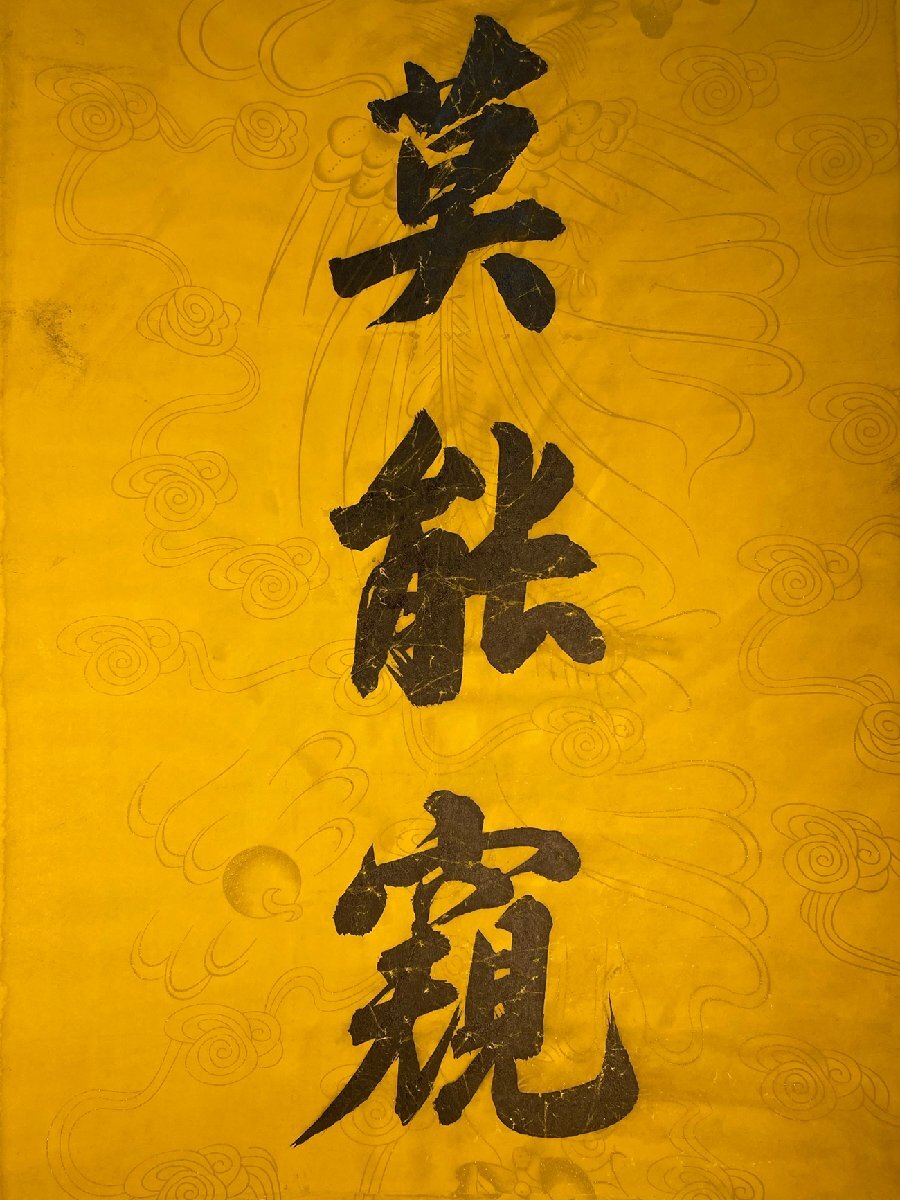 莫能窺